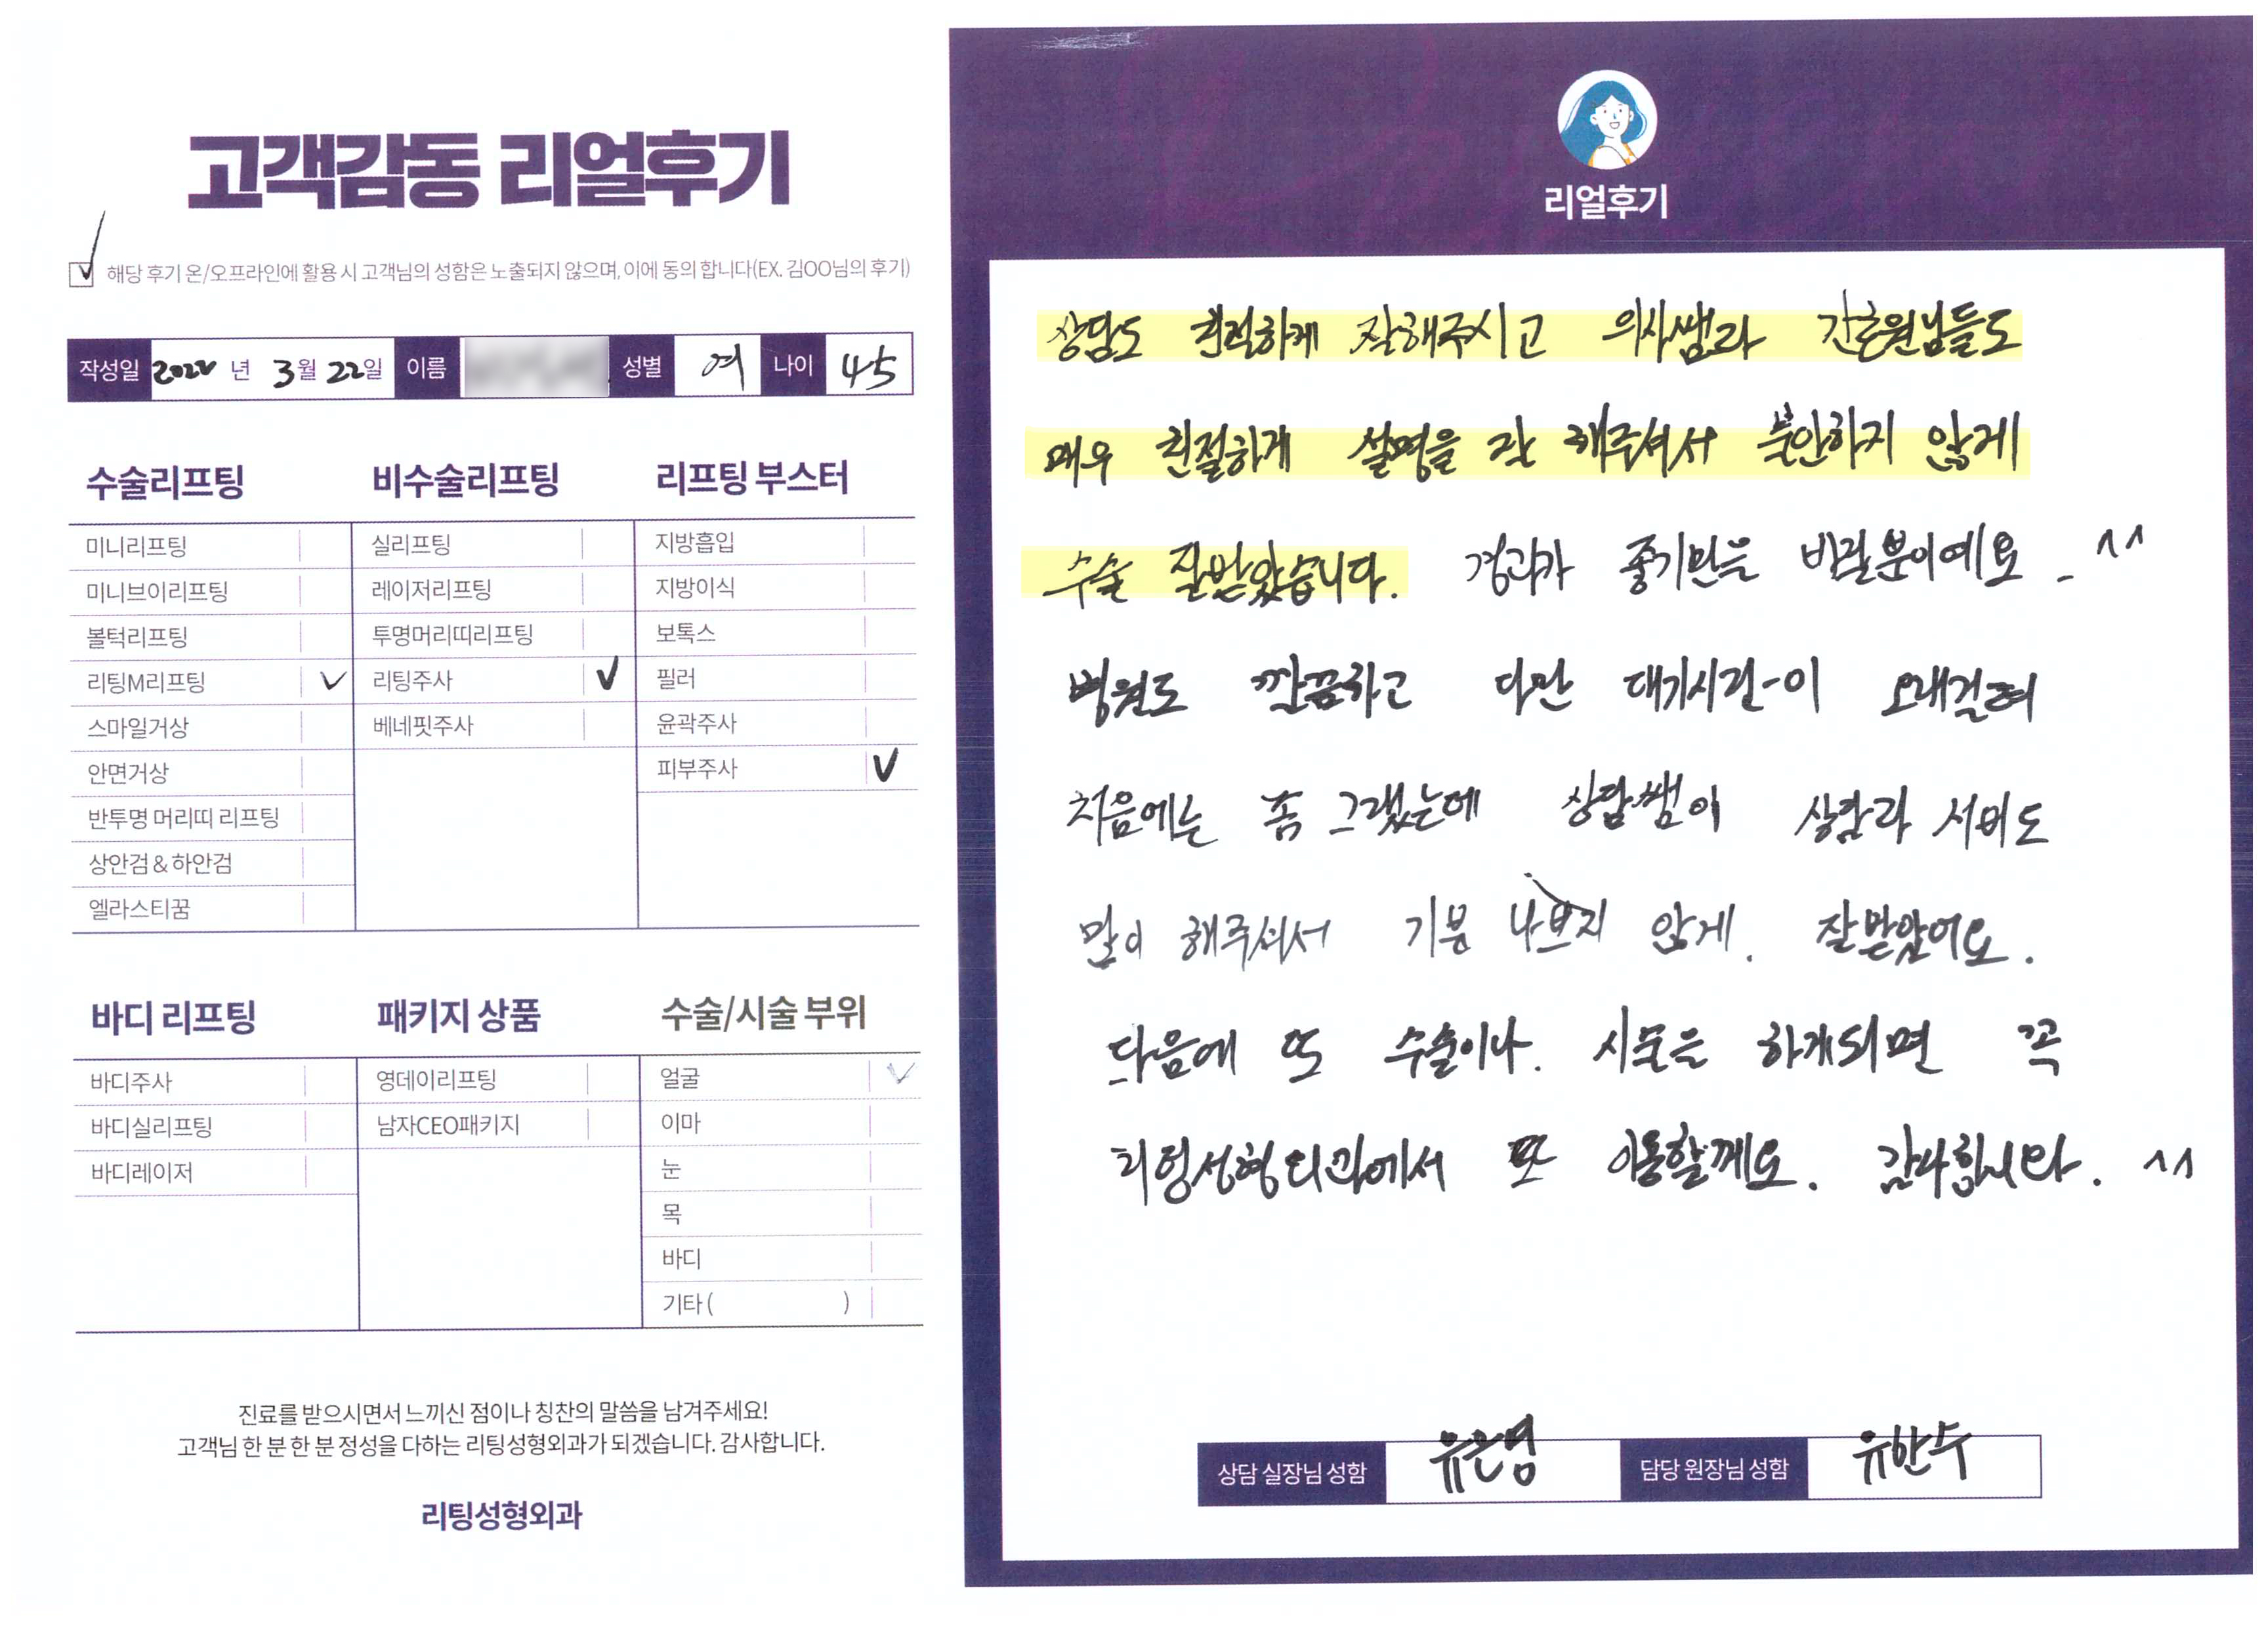 고객감동 리얼후기
해당 후기 온/오프라인에 활용 시 고객님의 성함은 노출되지 않으며, 이에 동의 합니다(EX. 김OO님의 후기)
작성일 2022 년 3월 22일 이름 성별 여 나이 45
수술리프팅
미니리프팅
미니브이리프팅
볼턱리프팅
리팅M리프팅
스마일거상
안면거상
반투명 머리띠 리프팅
상안검 & 하안검
엘라스티꿈
비수술리프팅
실리프팅
레이저리프팅
투명머리띠리프팅
리팅주사
베네핏주사
리프팅 부스터
지방흡입
지방이식
보톡스
필러
윤곽주사
피부주사
바디 리프팅
바디주사
바디실리프팅
바디레이저
패키지 상품
영데이리프팅
남자CEO패키지
수술/시술 부위
얼굴
이마
눈
목
바디
기타 ( )
진료를 받으시면서 느끼신 점이나 칭찬의 말씀을 남겨주세요!
고객님 한 분 한 분 정성을 다하는 리팅성형외과가 되겠습니다. 감사합니다.
리팅성형외과
리얼후기
상담도 친절하게 잘해주시고 의사쌤과 간호원님들도
매우 친절하게 설명을 잘 해주셔서 불안하지 않게
수술 잘받았습니다. 경과가 좋기만을 바랄뿐이예요. ^^
병원도 깔끔하고 다만 대기시간이 오래걸려
처음에는 좀 그랬는데 상담쌤이 상담과 서비도
많이 해주셔서 기분 나쁘지 않게. 잘받았어요.
다음에 또 수술이나. 시술을 하게되면 꼭
리팅성형외과에서 또 이용할께요. 감사합니다. ^^
상담 실장님 성함 유은영 담당 원장님 성함 유한수